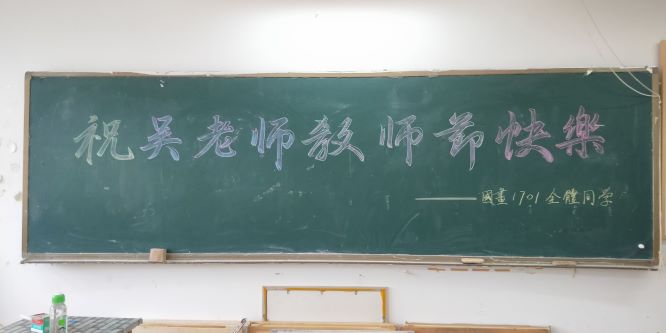 祝吴老师教师节快樂
——國畫1701全體同学